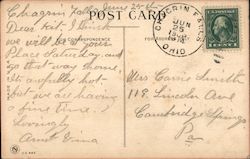 POST CARD
Chagrin Falls June 25th
Dear
we will be at your
place Saturday, and
go that way home.
its awfully hot
but we are having
a fine time.
Lovingly
Aunt Vina
CORRESPONDENCE
CHAGRIN FALLS
JUN
OHIO
Mrs Carrie Smith
119 Lincoln Ave
Cambridge Springs
Pa